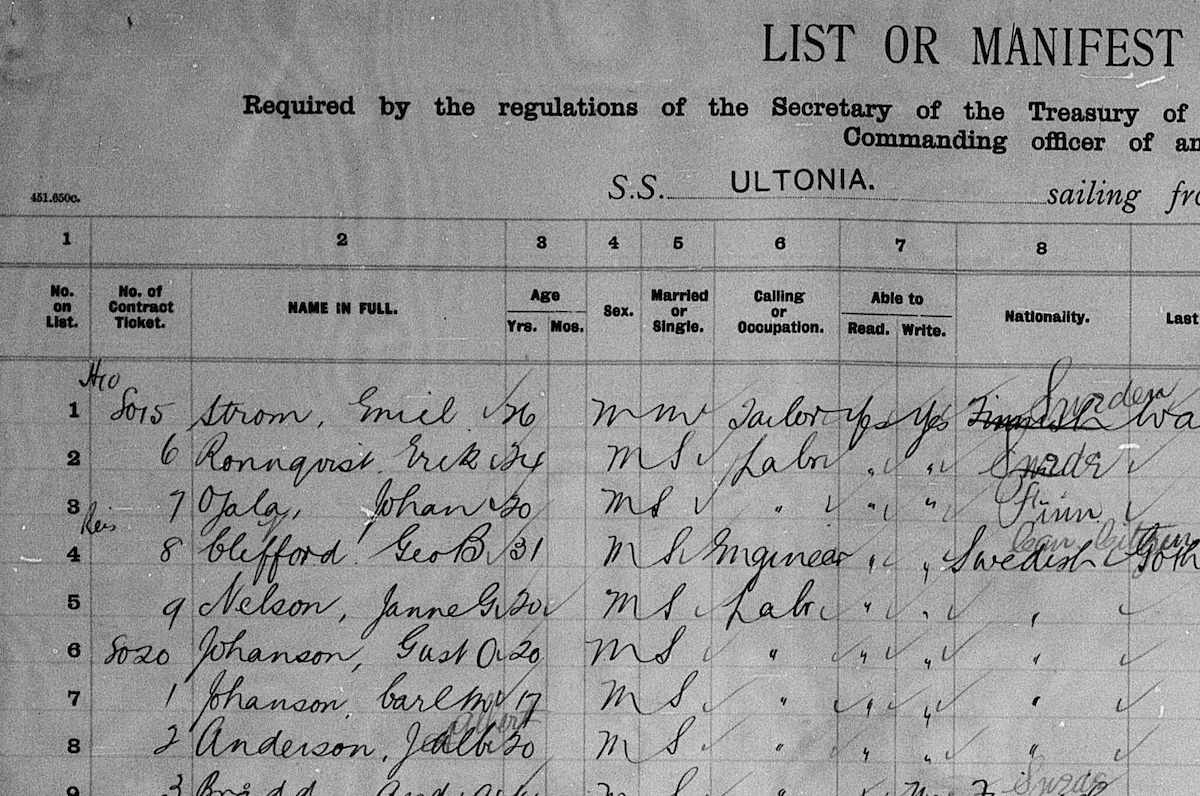 LIST OR MANIFEST
Required by the regulations of the Secretary of the Treasury of
Commanding officer of an
451.650c.
S.S. ULTONIA. sailing fro
1 2 3 4 5 6 7 8
No. on List. No. of Contract Ticket. NAME IN FULL. Age Yrs. Mos. Sex. Married or Single. Calling or Occupation. Able to Read. Write. Nationality. Last
1 8015 Strom, Emiel 26 M M Tailor Yes Yes Finnish Sweden Wa
2 6 Ronnqvist Erik 24 M S Labr " "
3 7 Ojala, Johan 20 M S " " " Finn
4 8 Clefford Geo B 31 M S Engineer " " Swedish Goth
5 9 Nelson, Janne G 20 M S Labr " " "
6 8020 Johanson, Gust O 20 M S " " " "
7 1 Johanson, Carl M 17 M S " " " "
Albert
8 2 Anderson, J Alb 20 M S " " " "
9 3